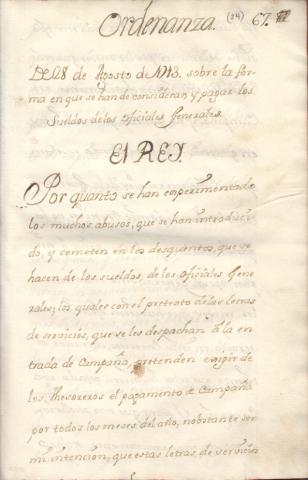 Ordenanza. (24) 67.
De 28 de Agosto de 1713. sobre la for-
ma en que se han de considerar, y pagar los
Sueldos de los oficiales Generales.
El REY.
Por quanto se han experimentado
los muchos abusos, que se han introduci-
do, y cometen en los desquentos, que se
hacen de los sueldos, de los oficiales Gene
rales; los quales con el pretexto de las letras
de servicios, que se les despachan a la en
trada de Campaña, pretenden exigir de
los Thesoreros el pagamento de Campaña
por todos los meses del año, nobstante ser
mi intencion, que estas letras de servicio